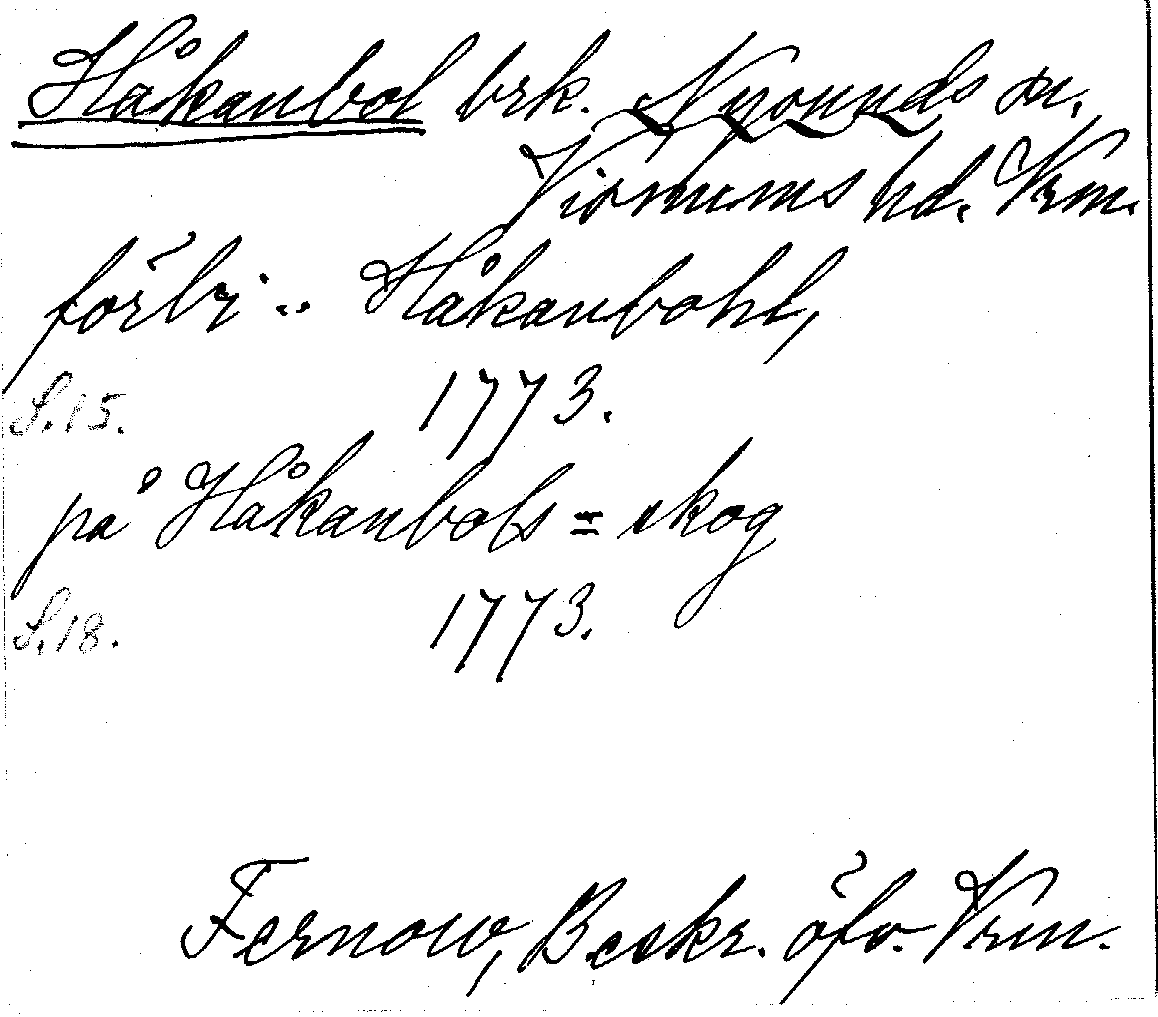 Håkanbol brk. Nysunds sn.
Visnums hd. Vrm.
förbi .. Håkanbohl,
S.15. 1773.
på Håkanbols = skog
S.18. 1773.
Fernow, Beskr. öfv. Vrm.